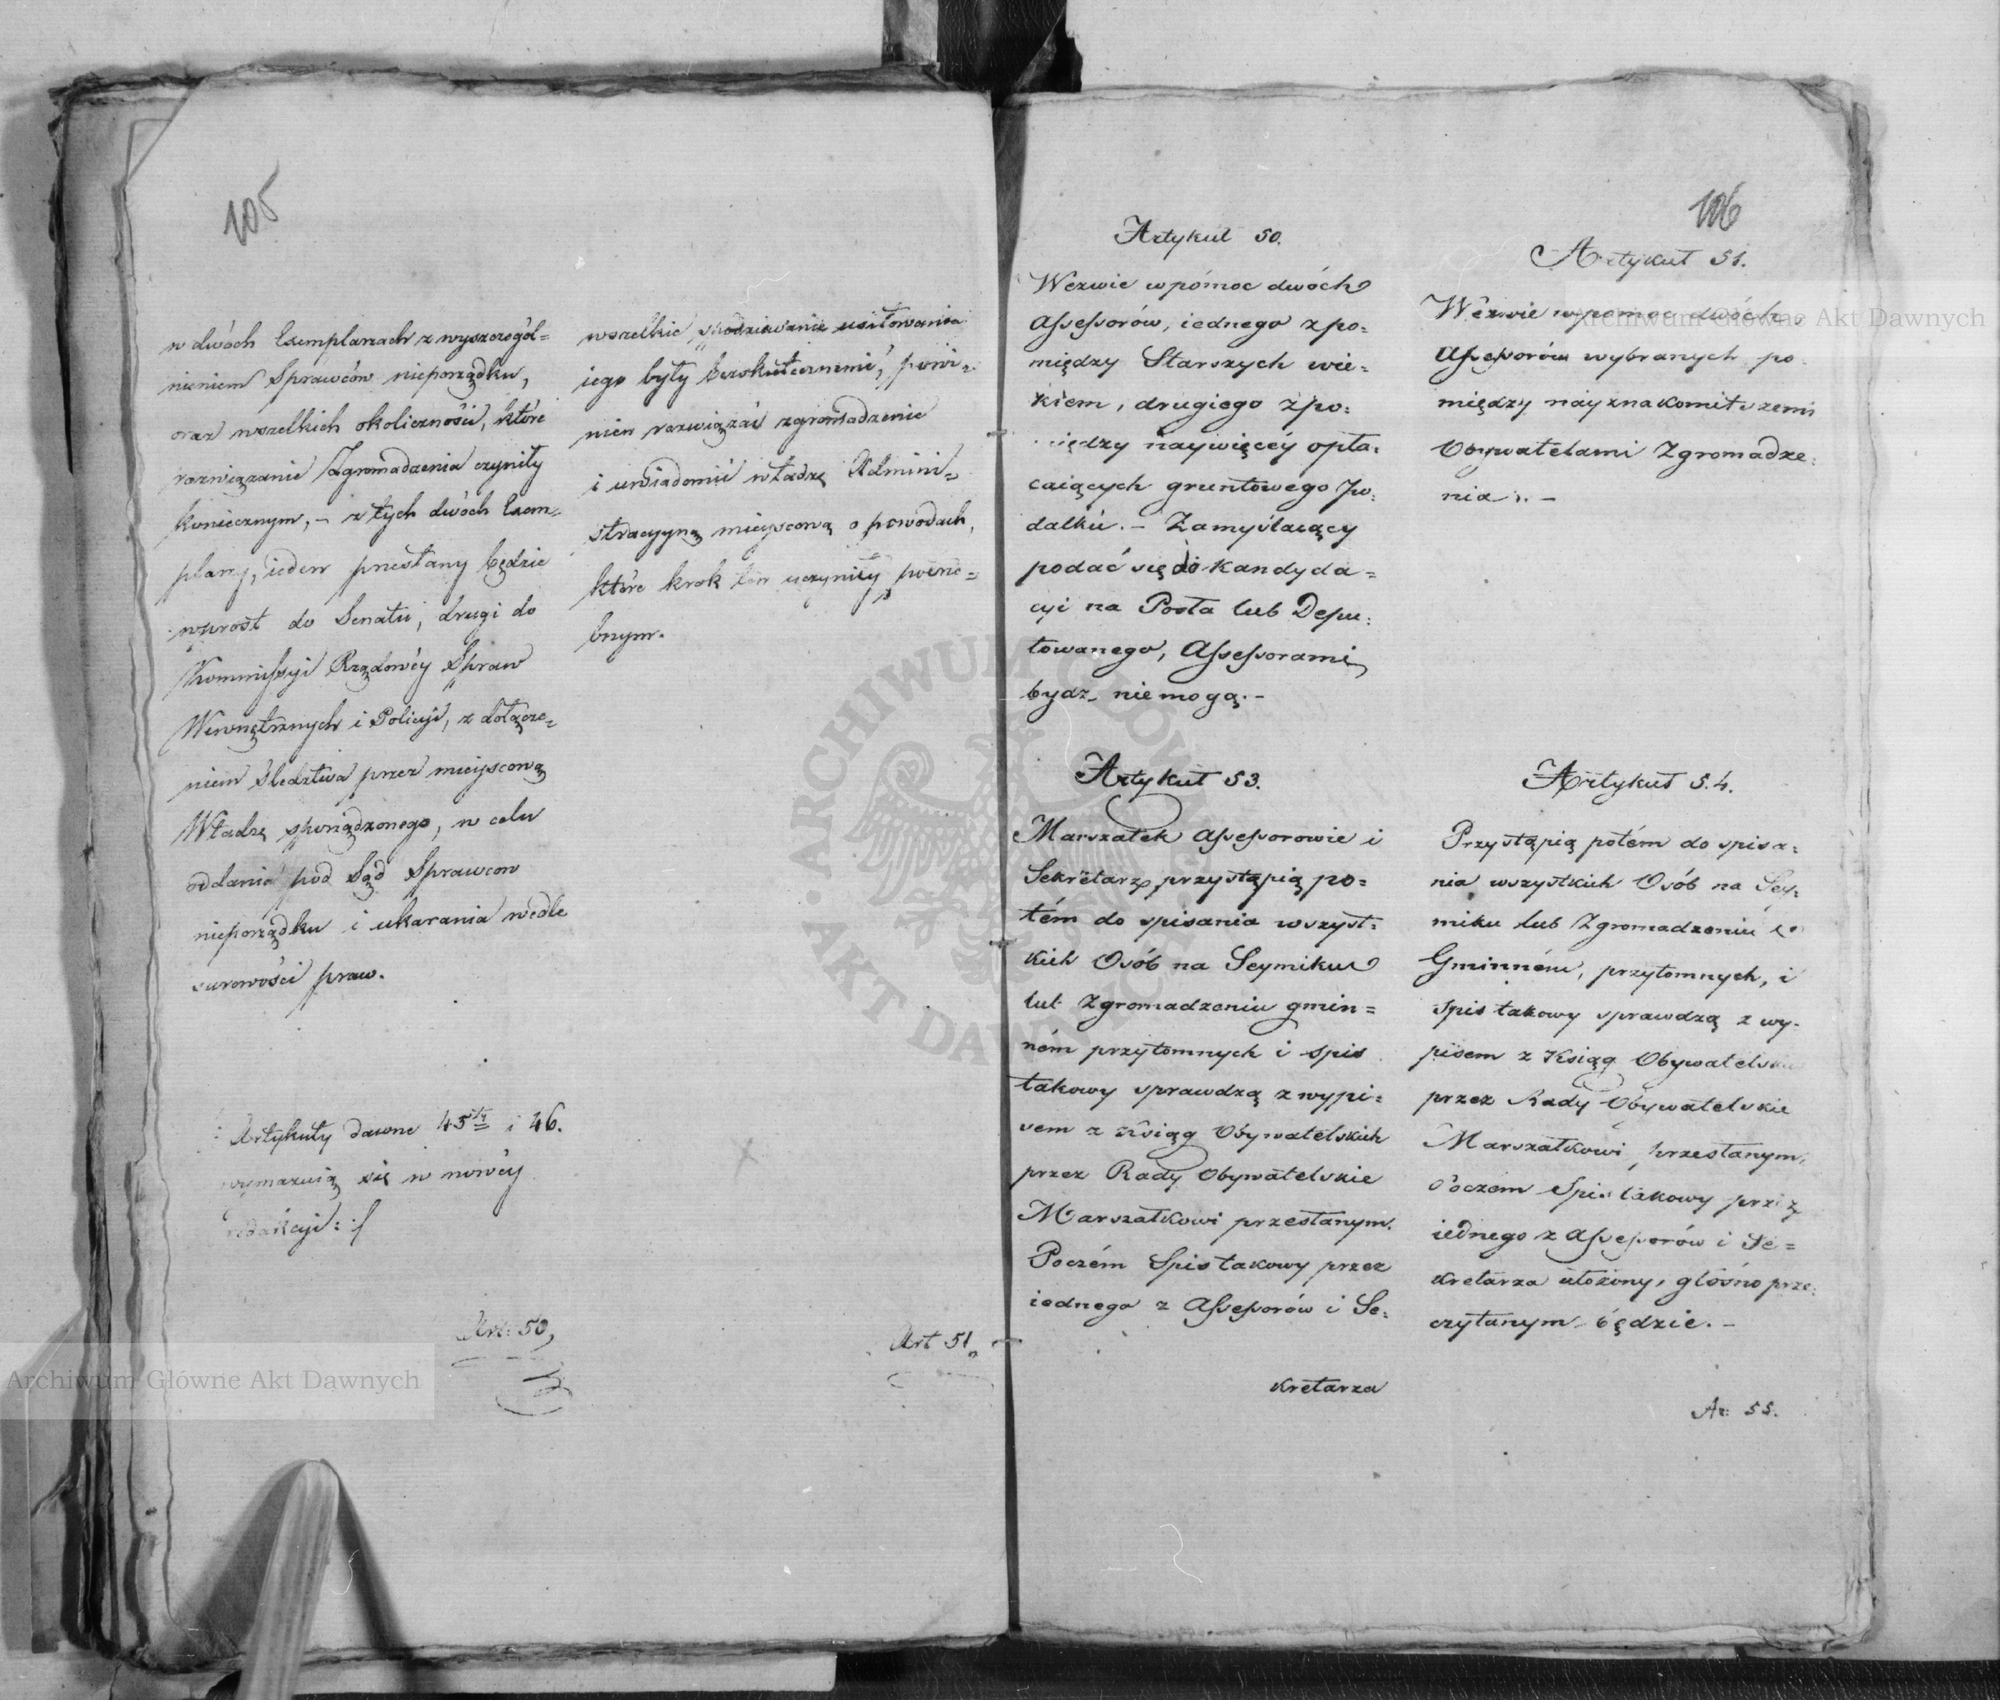 105
w dwóch Exemplarzach z wyszczegól=
nieniem Sprawców nieporządku,
oraz wszelkich okoliczności, które
rozwiązanie Zgromadzenia czyniły
koniecznym, – z tych dwóch Exem=
plarzy, ieden przesłany będzie
wprost do Senatu, drugi do
Kommissyi Rządowéy Spraw
Wewnętrznych i Policyi, z dołącze=
niem śledztwa przez mieyscową
Władzę sporządzonego, w celu
oddania pod Sąd Sprawcow
nieporządku i ukarania wedle
surowości praw.
Artykuły dawne 45ty i 46.
wymazuią się w nowéy
redakcyi :/
Art: 50,
wszelkie spodziewanie usiłowania
iego były bezskutecznemi, powi=
nien rozwiązać zgromadzenie
i uwiadomić władzę Admini=
stracyyną mieyscową o powodach,
które krok ten uczyniły potrze=
bnym.
Art 51,
Artykuł 50.
Wezwie w pómoc dwóch
Assessorów, iednego z po=
między Starszych wie=
kiem, drugiego z po=
między naywięcéy opła=
caiących gruntowego Po=
datku. – Zamyślaiący
podać się do kandyda=
cyi na Posła lub Depu=
towanego, Assessorami
bydz nie mogą. –
Artykuł 53.
Marszałek Assessorowie i
Sekretarz przystąpią po=
tém do spisania wszyst=
kich Osób na Seymiku
lub Zgromadzeniu gmin=
ném przytomnych i spis
takowy sprawdzą z wypi=
sem z Ksiąg Obywatelskich
przez Rady Obywatelskie
Marszałkowi przesłanym.
Poczém Spis takowy przez
iednego z Assessorów i Se=
kretarza
106
Artykuł 51.
Wezwie w pomoc dwóch
Assessorów wybranych po=
między nayznakomitszemi
Obywatelami Zgromadze=
nia. –
Artykuł 54.
Przystąpią potém do spisa=
nia wszystkich Osób na Sey=
miku lub Zgromadzeniu
Gminném, przytomnych, i
Spis takowy sprawdzą z wy=
pisem z Ksiąg Obywatelskich
przez Rady Obywatelskie
Marszałkowi przesłanym,
Poczem Spis takowy przez
iednego z Assessorów i Se=
kretarza ułożony, głośno prze=
czytanym będzie. –
Ar: 55.
Archiwum Główne Akt Dawnych
Archiwum Główne Akt Dawnych
ARCHIWUM GŁÓWNE
AKT DAWNYCH